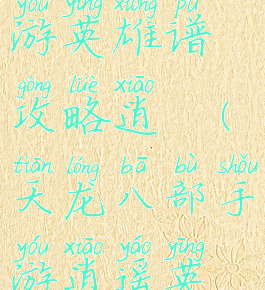 yóu yīng xióng pǔ
游英雄谱
gōng lüè xiāo
攻略逍（
tiān lóng bā bù shǒu
天龙八部手
yóu xiāo yáo yīng
游逍遥英